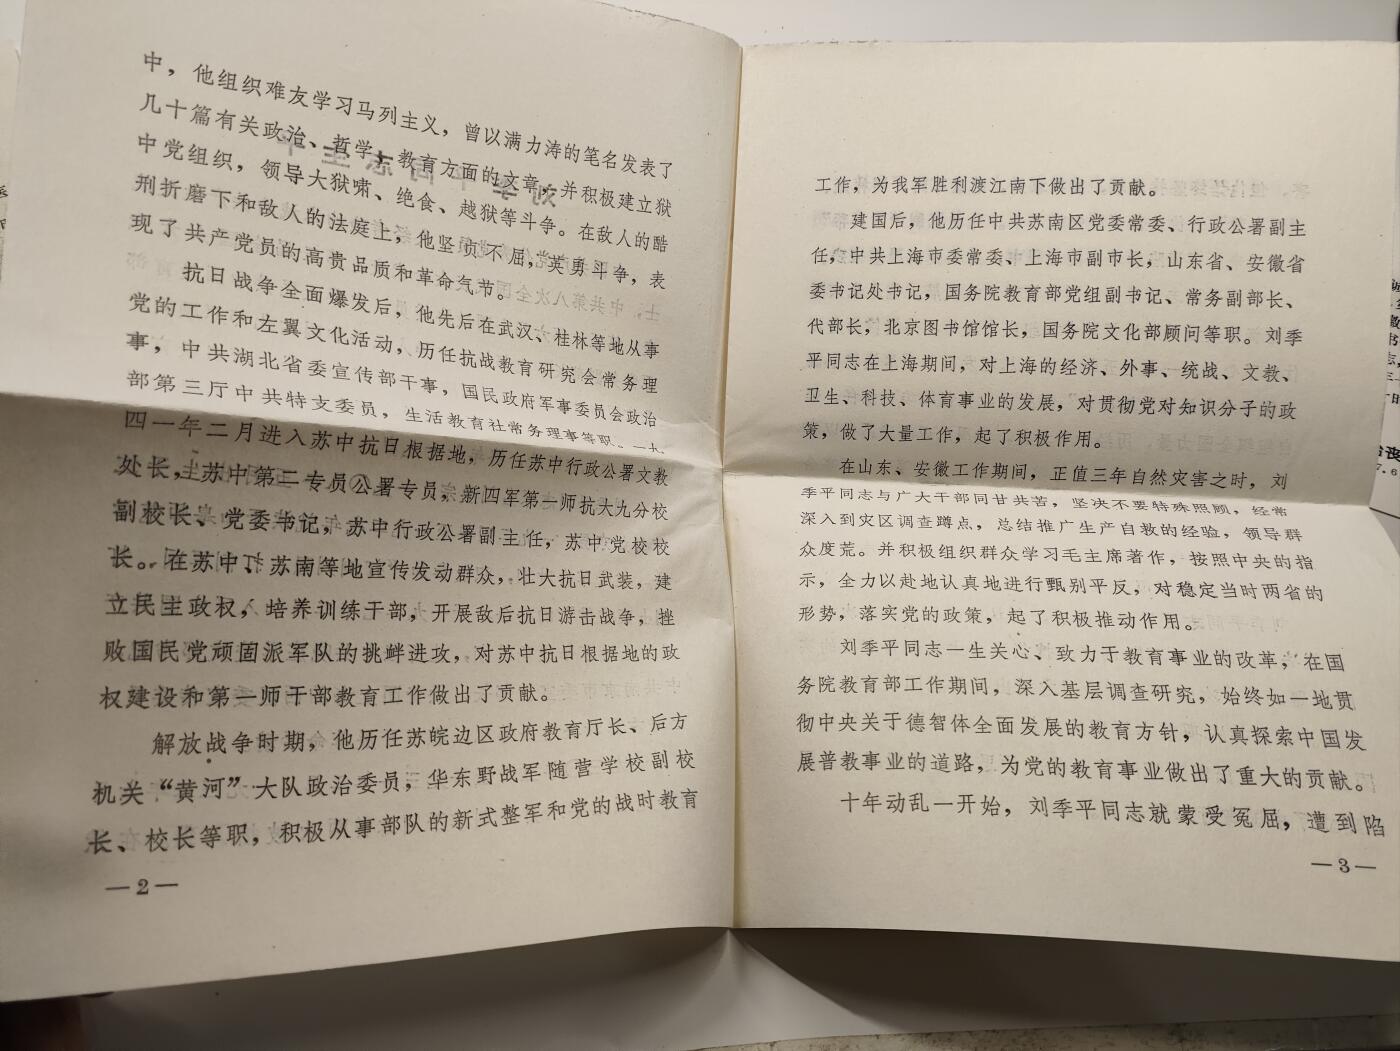 中，他组织难友学习马列主义，曾以满力涛的笔名发表了
几十篇有关政治、哲学、教育方面的文章，并积极建立狱
中党组织，领导大狱啸、绝食、越狱等斗争。在敌人的酷
刑折磨下和敌人的法庭上，他坚贞不屈，英勇斗争，表
现了共产党员的高贵品质和革命气节。
抗日战争全面爆发后，他先后在武汉、桂林等地从事
党的工作和左翼文化活动，历任抗战教育研究会常务理
事，中共湖北省委宣传部干事，国民政府军事委员会政治
部第三厅中共特支委员，生活教育社常务理事等职。一九
四一年二月进入苏中抗日根据地，历任苏中行政公署文教
处长，苏中第二专员公署专员，新四军第一师抗大九分校
副校长、党委书记，苏中行政公署副主任，苏中党校校
长。在苏中、苏南等地宣传发动群众，壮大抗日武装，建
立民主政权，培养训练干部，开展敌后抗日游击战争，挫
败国民党顽固派军队的挑衅进攻，对苏中抗日根据地的政
权建设和第一师干部教育工作做出了贡献。
解放战争时期，他历任苏皖边区政府教育厅长、后方
机关“黄河”大队政治委员，华东野战军随营学校副校
长、校长等职，积极从事部队的新式整军和党的战时教育
—2—
工作，为我军胜利渡江南下做出了贡献。
建国后，他历任中共苏南区党委常委、行政公署副主
任，中共上海市委常委、上海市副市长，山东省、安徽省
委书记处书记，国务院教育部党组副书记、常务副部长、
代部长，北京图书馆馆长，国务院文化部顾问等职。刘季
平同志在上海期间，对上海的经济、外事、统战、文教、
卫生、科技、体育事业的发展，对贯彻党对知识分子的政
策，做了大量工作，起了积极作用。
在山东、安徽工作期间，正值三年自然灾害之时，刘
季平同志与广大干部同甘共苦，坚决不要特殊照顾，经常
深入到灾区调查蹲点，总结推广生产自救的经验，领导群
众度荒。并积极组织群众学习毛主席著作，按照中央的指
示，全力以赴地认真地进行甄别平反，对稳定当时两省的
形势，落实党的政策，起了积极推动作用。
刘季平同志一生关心、致力于教育事业的改革，在国
务院教育部工作期间，深入基层调查研究，始终如一地贯
彻中央关于德智体全面发展的教育方针，认真探索中国发
展普教事业的道路，为党的教育事业做出了重大的贡献。
十年动乱一开始，刘季平同志就蒙受冤屈，遭到陷
—3—